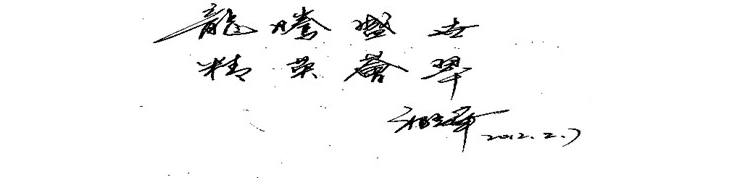 龍騰盛世
精英薈翠
2012.2.7